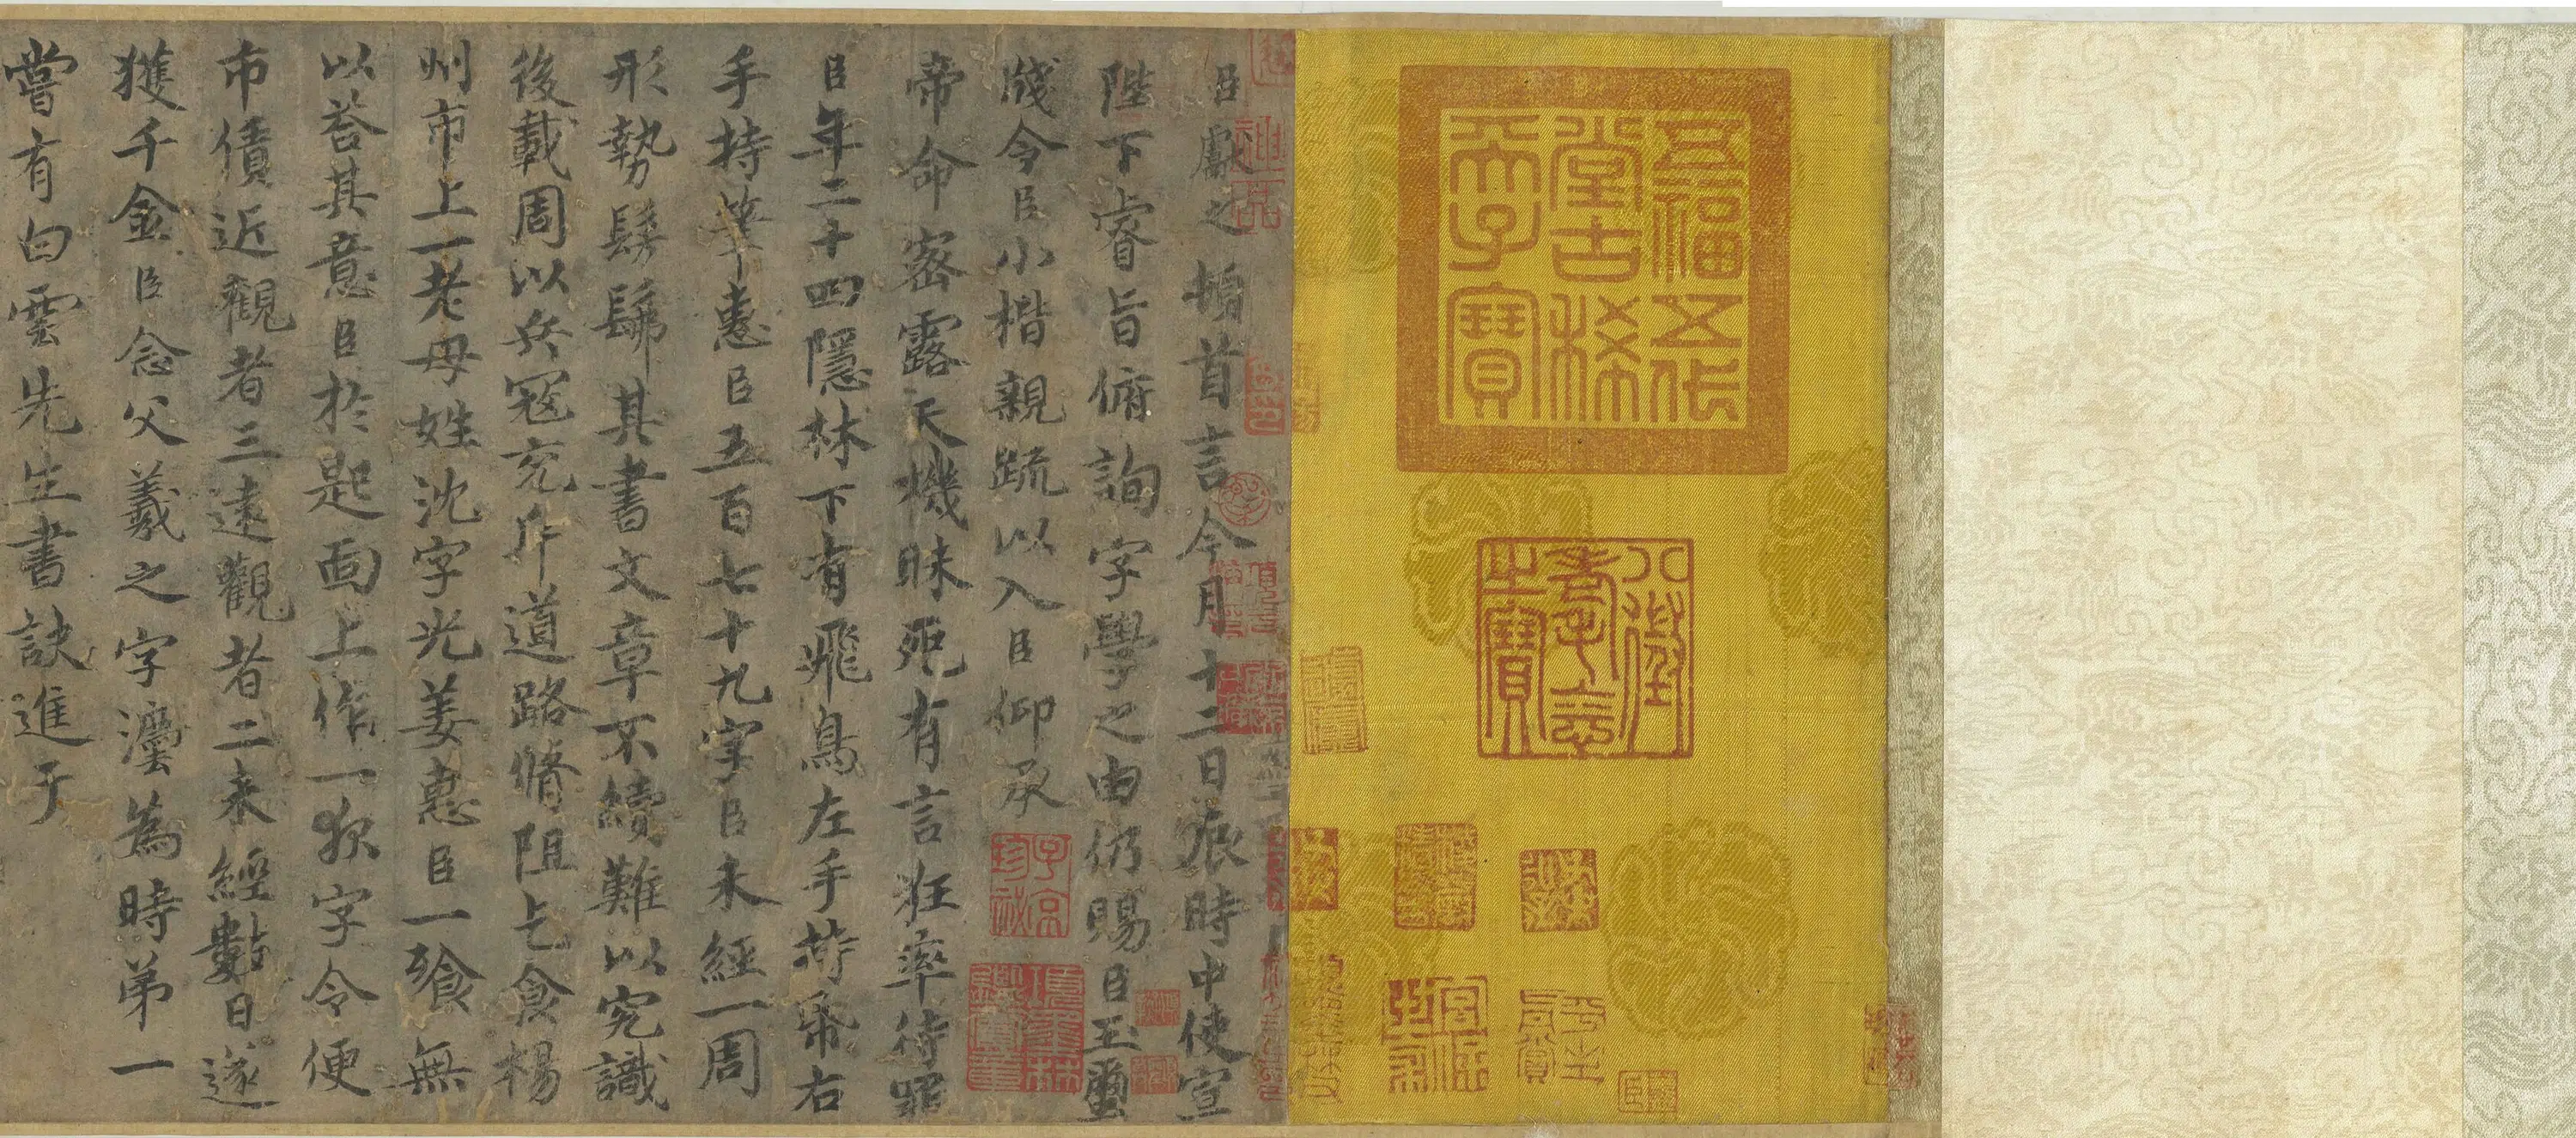 五福五代
堂古稀
天子寶
八徵
耄念
之寶
臣獻之頓首言今月十二日辰時中使宣
陛下睿旨俯詢字學之由仍賜臣玉璽
牋令臣小楷親疏以入臣仰承
帝命密露天機昧死有言狂率待罪
臣年二十四隱林下有飛鳥左手持帋右
手持筆惠臣五百七十九字臣未經一周
形勢髣髴其書文章不續難以究識
後載周以兵寇充斥道路脩阻乞食揚
州市上一老母姓沈字光姜惠臣一飡無
以荅其意臣於匙面上作一夜字令便
市債近觀者三遠觀者二未經數日遂
獲千金臣念父羲之字法為時第一
嘗有白雲先生書訣進于
子京
珍祕
項墨林
鑑賞章